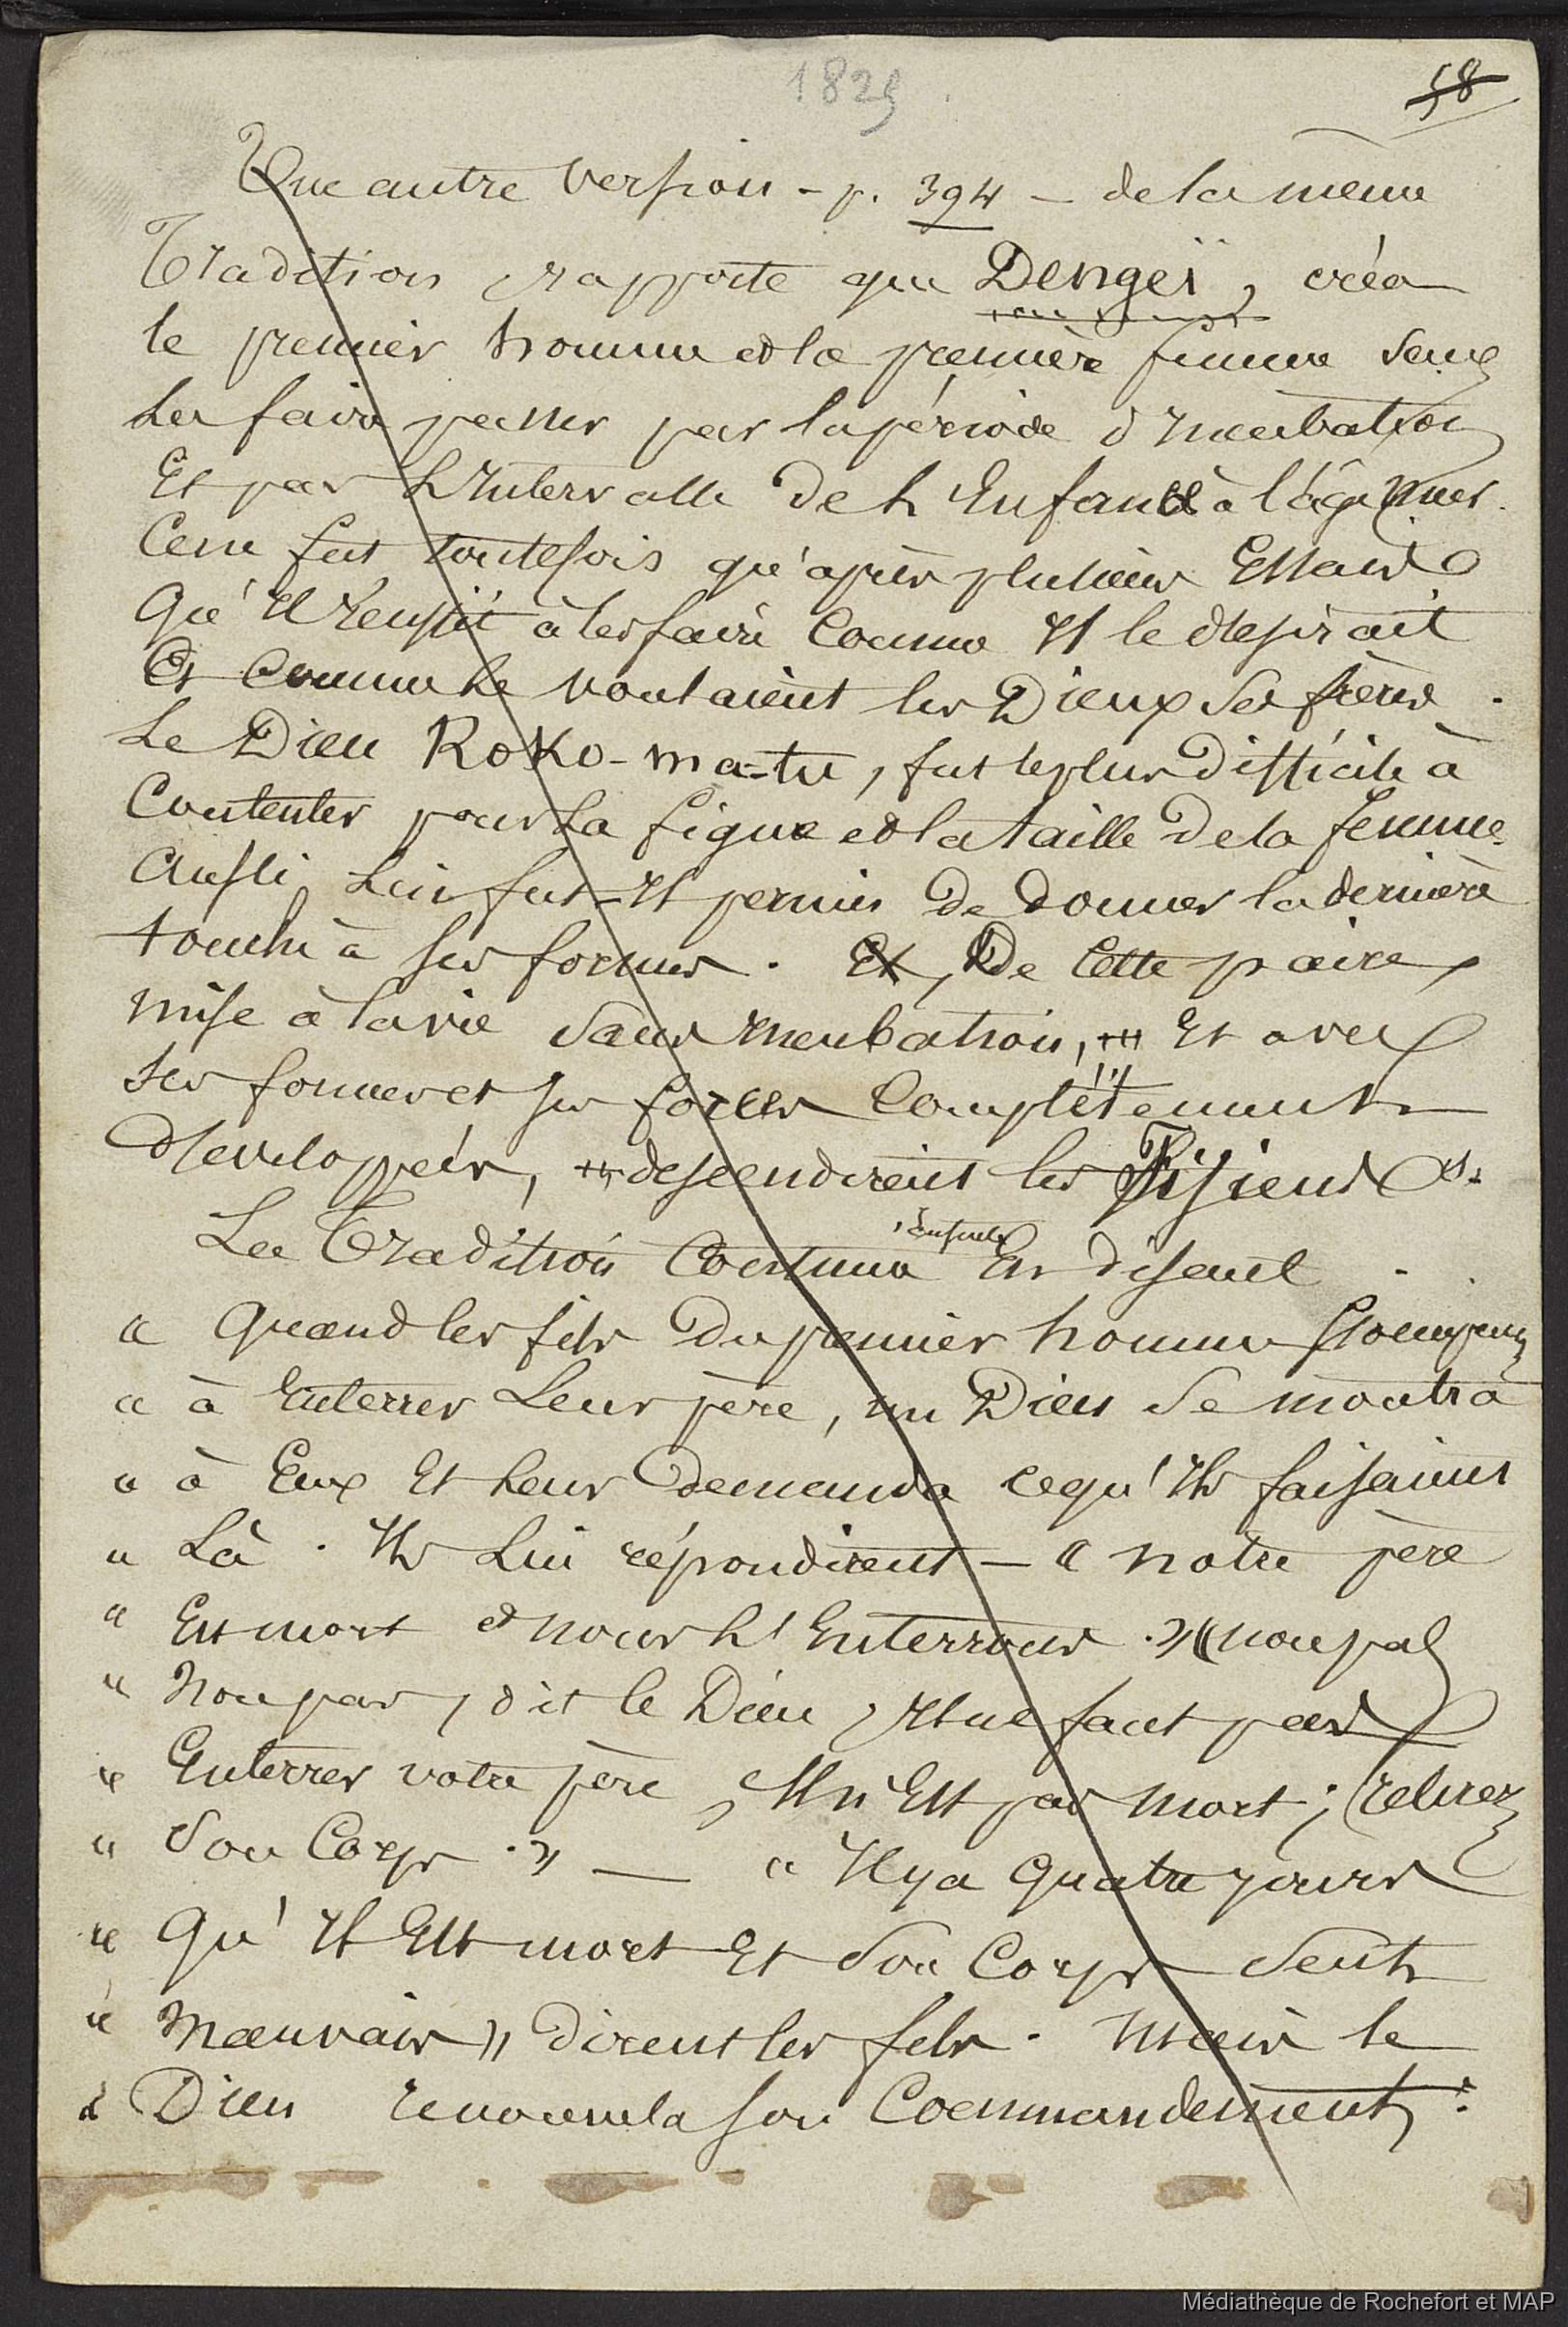 1825
58
Une autre version - p. 394 - de la même
Tradition, rapporte que Dengeï, créa
le premier homme et la première femme sans
Les faire passer par la période d'Incubation
Et par L'Intervalle de L'Enfance à l'âge mur.
Ce ne fut toutefois qu'après plusieurs Essais
Qu'Il réussit à les faire Comme Il le desirait
Et Comme Le voulaient les Dieux Ses frères.
Le Dieu Roko-ma-tu, fut le plus difficile à
Contenter pour La figure et la taille de la femme.
Aussi, Lui fut-Il permis de donner la dernière
touche à ses formes. Et, De Cette paire,
mise à la vie Sans Incubation, Et avec
Ses formes et ses forces Complètement
développées, descendirent les Fisiens.
La Tradition Continue ensuite En disant
« Quand les fils du premier homme
« à Enterrer Leur père, un Dieu Se montra
« à Eux Et Leur demanda ce qu'Ils faisaient
« Là. Ils Lui répondirent - « notre père
« Est mort et nous L'Enterrons. » « non pas
« Non pas, dit le Dieu, Il ne faut pas
« Enterrer votre père, Il n'Est pas mort ; retirez
« Son Corps. » — « Il y a quatre jours
« Qu'Il Est mort Et Son Corps Sent
« Mauvais » dirent les fils. Mais le
« Dieu renouvela son Commandement :
Médiathèque de Rochefort et MAP